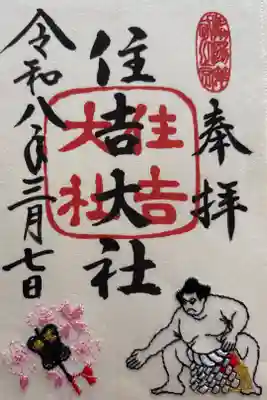 奉拝
住吉大社
住吉大社
令和八年三月七日